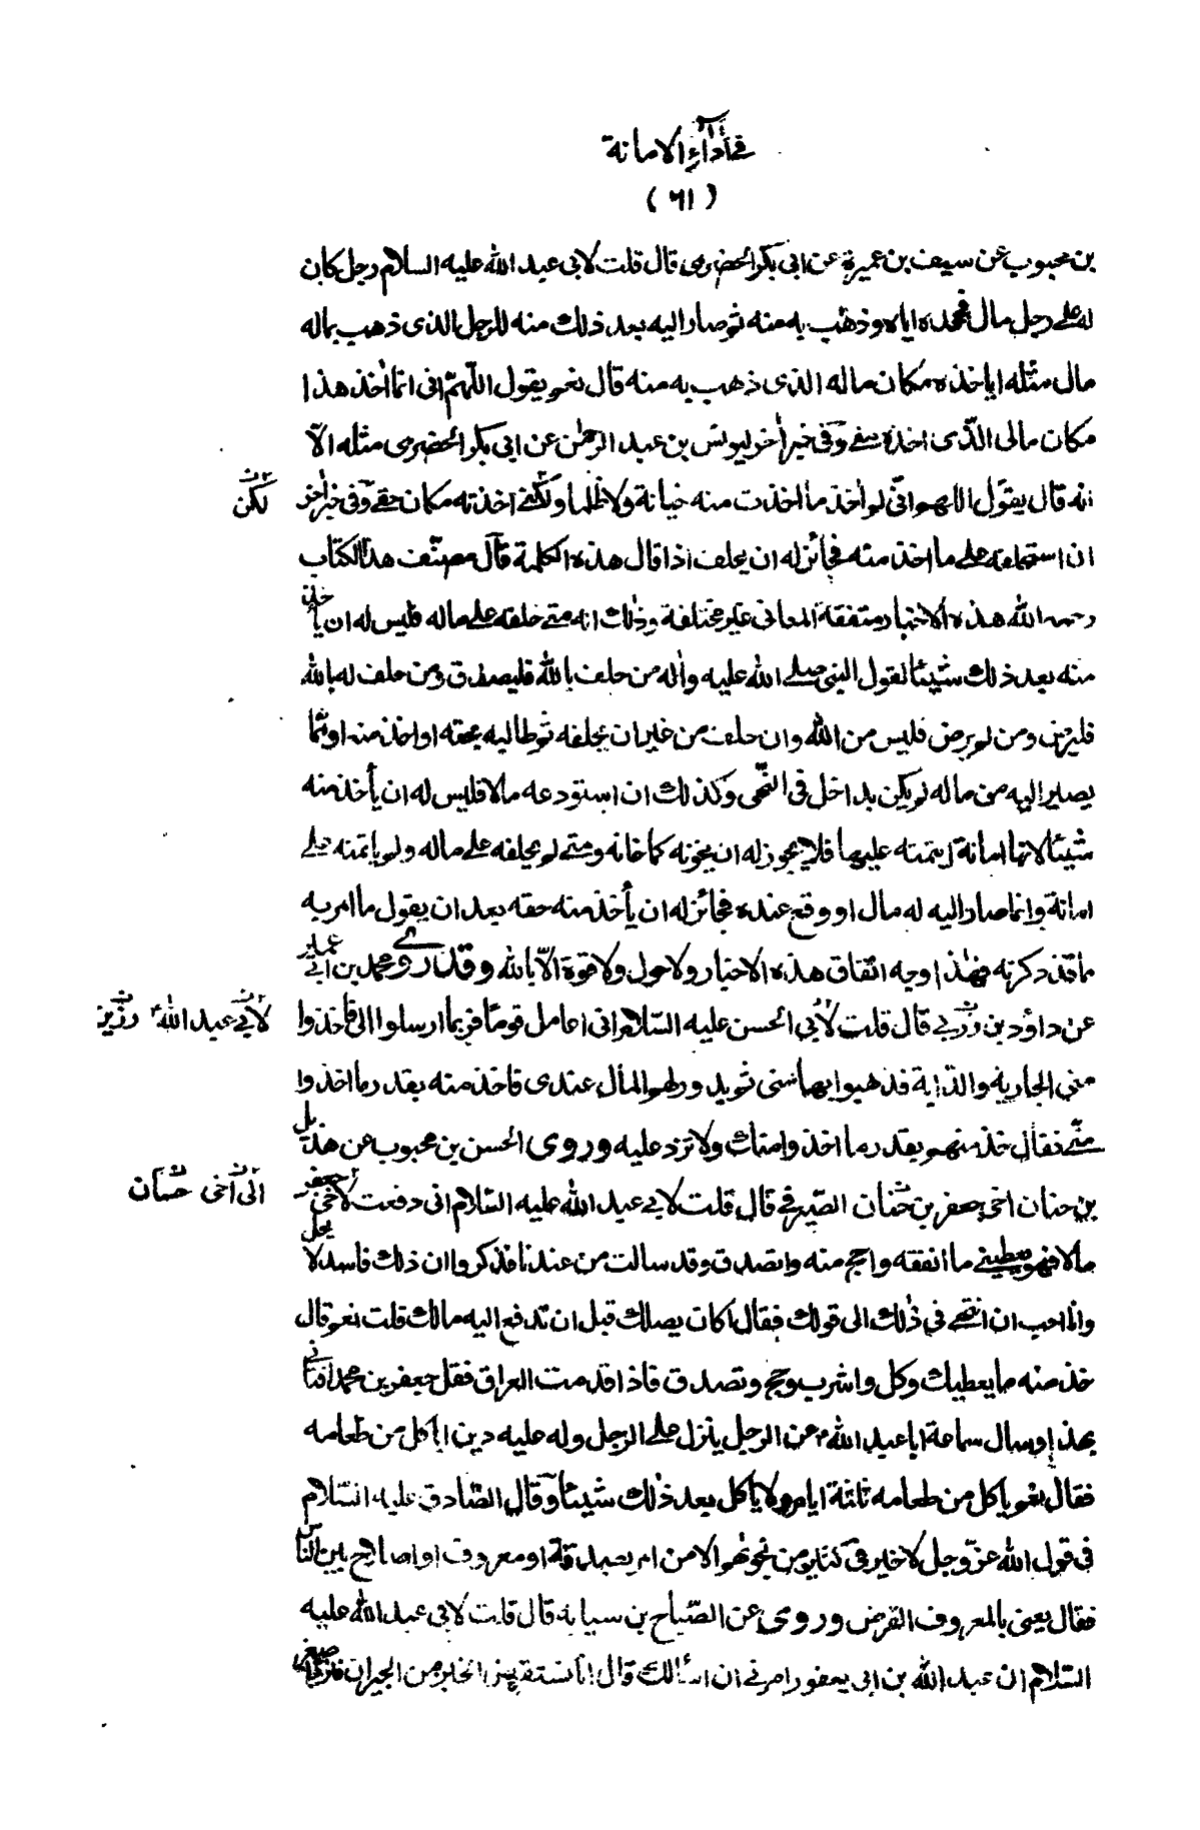 في أداء الامانة
(٦١)
بن محبوب عن سيف بن عميرة عن ابى بكر الحضرمى قال قلت لابى عبد الله عليه السلام رجل كان
له على رجل مال فجحده اياه وذهب به منه ثم صار اليه بعد ذلك منه للرجل الذى ذهب بماله
مال مثله اياخذه مكان ماله الذى ذهب به منه قال نعم يقول اللّهمّ انى انما اٰخذ هذا
مكان مالى الذّى اخذه منى وفى خبر اٰخر ليونس بن عبد الرحمٰن عن ابى بكر الحضرمى مثله الّا
انه قال يقول اللهم انّى لم اٰخذ ما اخذت منه خيانة ولا ظلما ولكنى اخذته مكان حقى وفى خبر اٰخر
لكن
ان استحلفه على ما اخذ منه فجائز له ان يحلف اذا قال هذه الكلمة قال مصنّف هذا الكتاب
رحمه الله هذه الاخبار متفقة المعانى غير مختلفة وذٰلك انه متى حلفه على ماله فليس له ان ياخذ
منه بعد ذلك شيئا لقول النبى صلى الله عليه واٰله من حلف بالله فليصدق ومن حلف له بالله
فليرض ومن لم يرض فليس من الله وان حلف من غير ان يحلفه ثم طالبه بحقه او اخذ منه او مما
يصير اليه من ماله لم يكن بداخل فى النّهى وكذلك ان استودعه مالا فليس له ان يأخذ منه
شيئا لانها امانة ايتمنه عليها فلا يجوز له ان يخونه كما خانه ومتى لم يحلفه على ماله ولم ياتمنه على
امانة وانما صار اليه له مال او وقع عنده فجائز له ان يأخذ منه حقه بعد ان يقول ما امر به
مما قد ذكرته فهٰذا وجه اتفاق هذه الاخبار ولا حول ولا قوة الّا بالله وقد روى محمد بن ابى عمير
عن داؤد بن رزبى قال قلت لأبى الحسن عليه السّلام انى اعامل قوما فربما ارسلوا الى فاخذوا
لأبى عبد الله ع رزين
منى الجارية والدّابة فذهبوا بها منى ثم يدور لهم المال عندى فاخذ منه بقدر ما اخذوا
منّى فقال خذ منهم بقدر ما اخذوا منك ولا تزد عليه وروى الحسن بن محبوب عن هذيل
بن حنان اخى جعفر بن حنان الصّيرفى قال قلت لابى عبد الله عليه السّلام انى دفعت لأخى جعفر
الى أخى حسان
مالا فهو يعطينى ما انفقه واحج منه واتصدق وقد سالت من عندنا فذكروا ان ذلك فاسد لا يحل
وانا احب ان انتهى فى ذٰلك الى قولك فقال اكان يصلك قبل ان تدفع اليه مالك قلت نعم قال
خذ منه ما يعطيك وكل واشرب وحج وتصدق فاذا قدمت العراق فقل جعفر بن محمد افتانى
بهذا وسال سماعة ابا عبد الله ع عن الرجل ينزل على الرجل وله عليه دين اياكل من طعامه
فقال نعم ياكل من طعامه ثلثة ايام ولا يأكل بعد ذٰلك شيئا وقال الصّادق عليه السّلام
فى قول الله عزّوجل لا خير فى كثير من نجوٰهم الا من امر بصدقة او معروف او اصلاح بين الناس
فقال يعنى بالمعروف القرض وروى عن الصّباح بن سيابه قال قلت لابى عبد الله عليه
السّلام ان عبد الله بن ابى يعفور امرنى ان اسألك قال انا نستقرض الخبز من الجيران